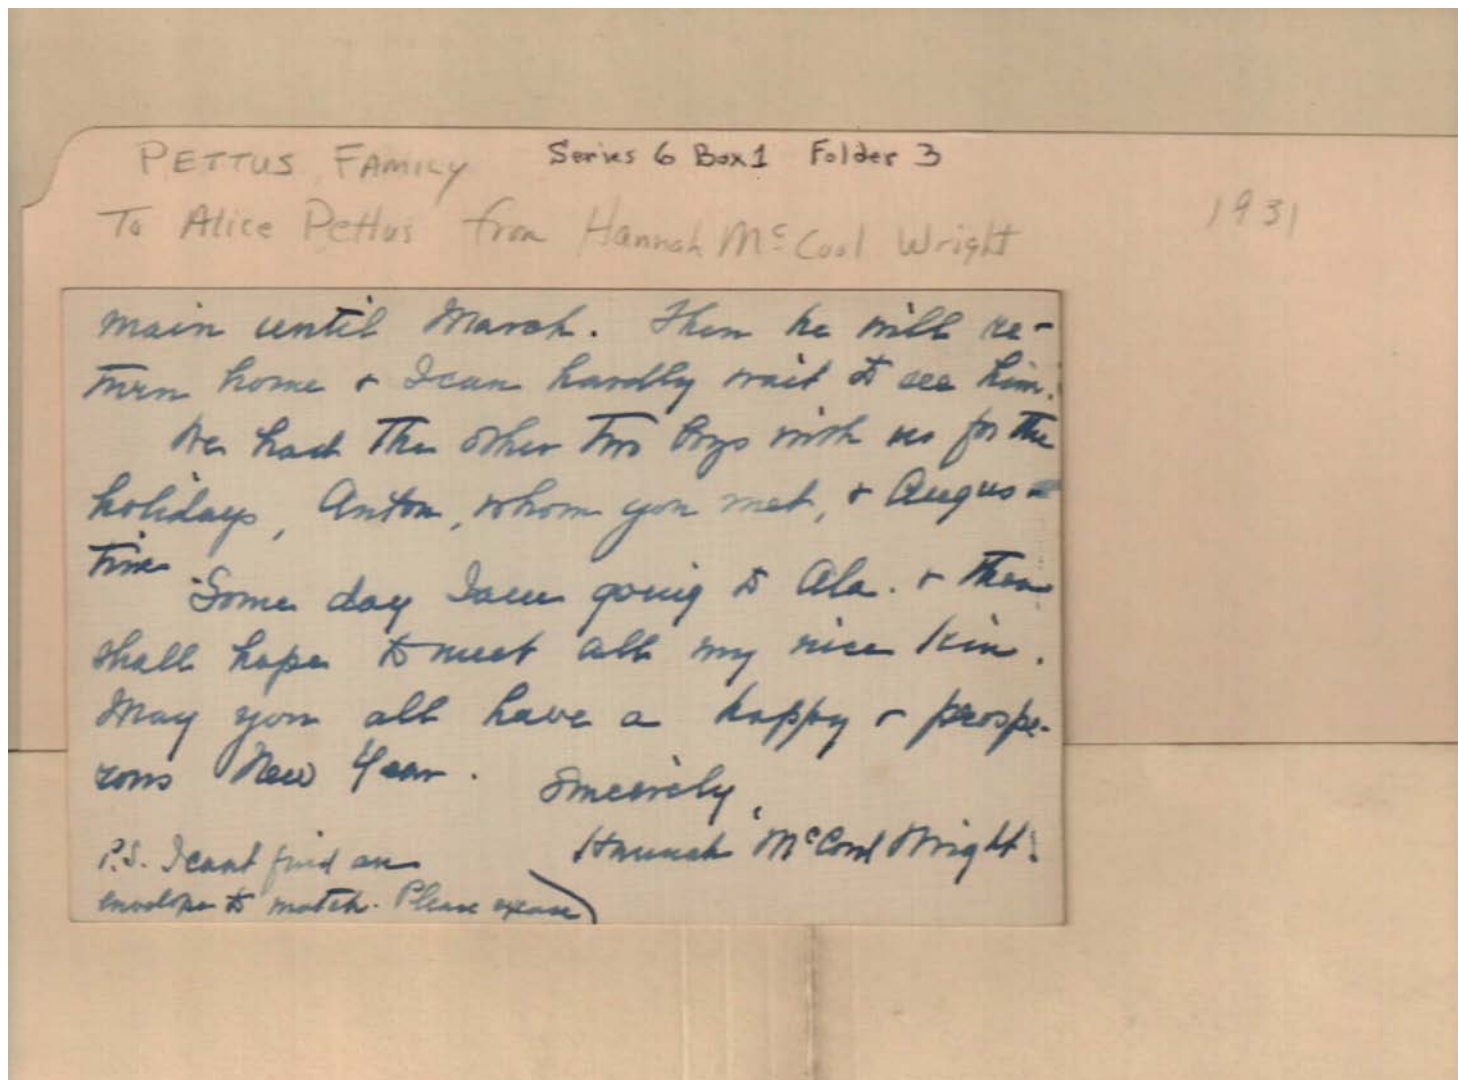 PETTUS FAMILY Series 6 Box 1 Folder 3
To Alice Pettus from Hannah McCool Wright 1931
main until March. Then he will re-
turn home & I can hardly wait to see him.
We had the other two boys with us for the
holidays, Anton, whom you met, & Augus-
tine.
Some day I am going to Ala. & then
shall hope to meet all my nice kin.
May you all have a happy & prospe-
rous New Year.
Sincerely,
Hannah McCool Wright.
P.S. I cant find an
envelope to match. Please excuse